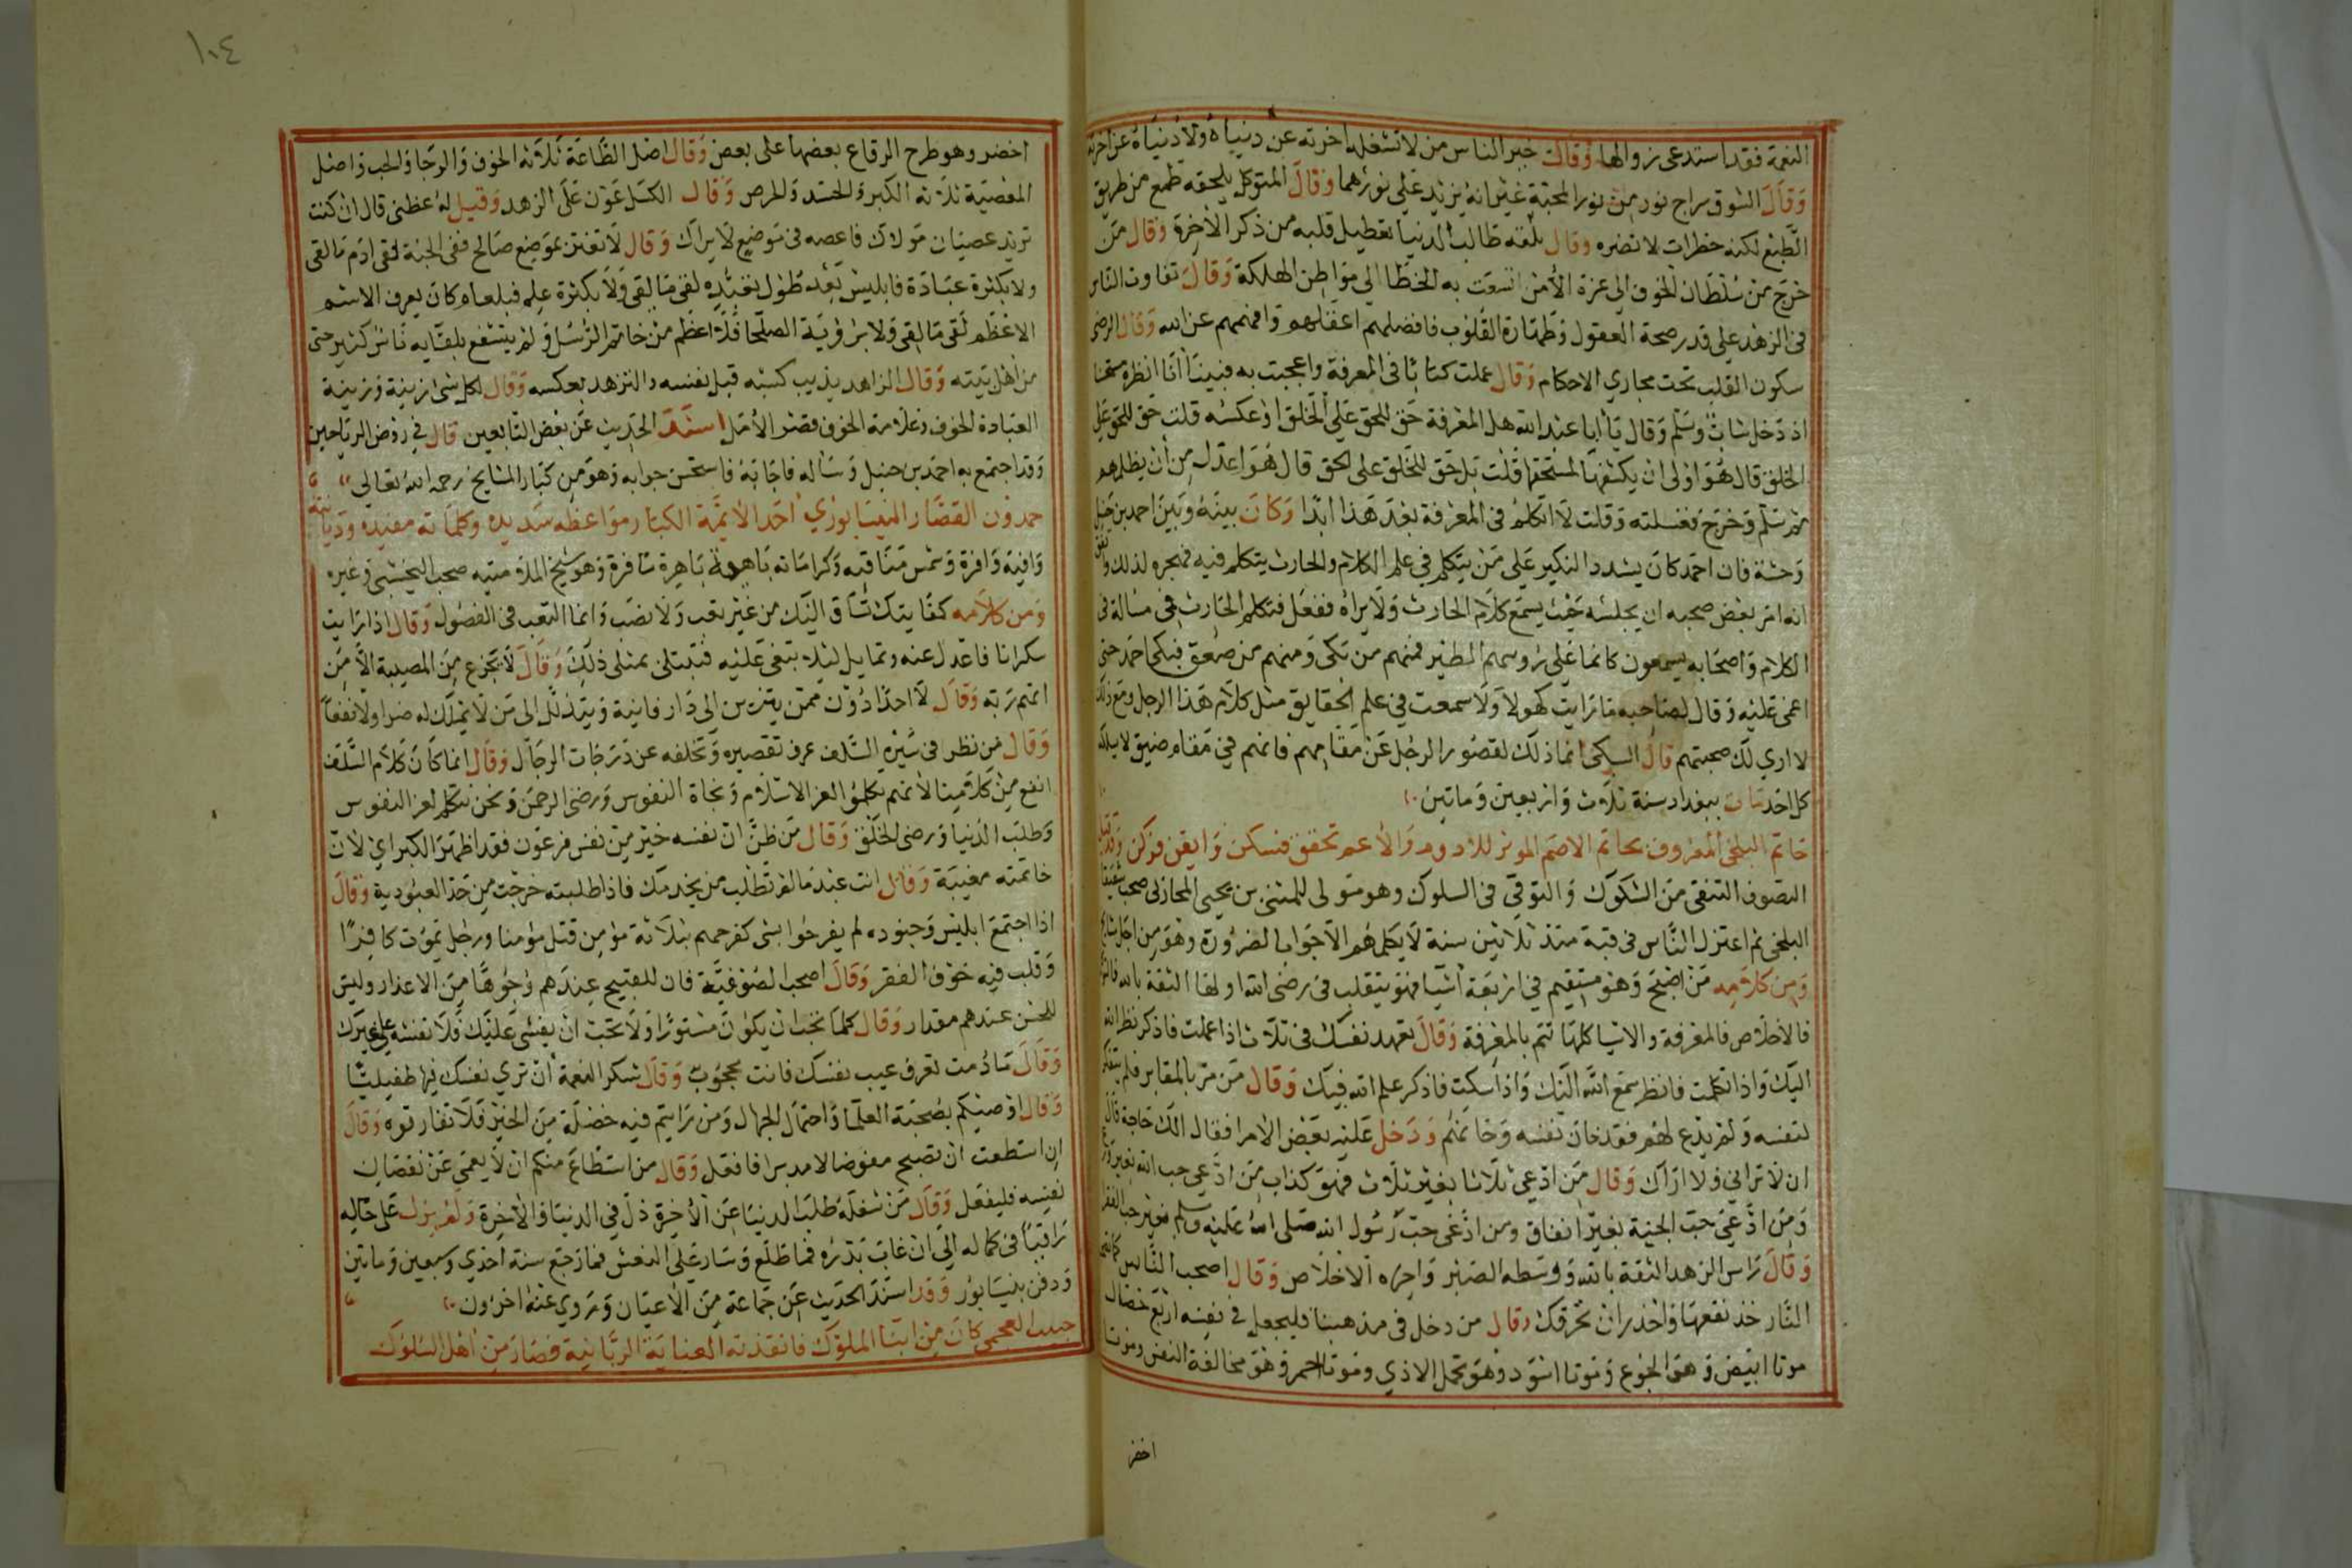 النعمة فقد استدعى زوالها وقال خير الناس من لا تشغله اخرته عن دنياه ولا دنياه عن اخرته
وقال الشوق سراج نور من نور المحبة غير انه يزيد على نورهما وقال المتوكل يلحقه طمع من طريق
الطبع لكنه خطرات لا تضره وقال بلغة طالب الدنيا تعطيل قلبه من ذكر الاخرة وقال من
خرج من سلطان الخوف الى عزة الأمن اتسعت به الخطا الى مواطن الهلكة وقال تفاوت الناس
في الزهد على قدر صحة العقول وطهارة القلوب فافضلهم اعقلهم وافهمهم عن الله وقال الرضى
سكون القلب تحت مجاري الاحكام وقال عملت كتابا في المعرفة واعجبت به فبينا أنا انظره مستحسنا
اذ دخل شاب وسلم وقال يا أبا عبد الله هل المعرفة حق للحق على الخلق او عكسه قلت حق للحق على
الخلق قال هو اولى ان يكشفها لمستحقها قلت بل حق للخلق على الحق قال هو اعدل من أن يظلمهم
ثم سلم وخرج فغسلته وقلت لا اتكلم في المعرفة بعد هذا ابدا وكان بينه وبين احمد بن حنبل
وحشة فان احمد كان يشدد النكير على من يتكلم في علم الكلام والحارث يتكلم فيه فهجره لذلك واتفق
انه امر بعض صحبه ان يجلسه حيث يسمع كلام الحارث ولا يراه ففعل فتكلم الحارث في مسالة في
الكلام واصحابه يسمعون كانما على روسهم الطير فمنهم من بكى ومنهم من صعق فبكى احمد حتى
اغمى عليه وقال لصاحبه ما رايت كهولا ولا سمعت في علم الحقايق مثل كلام هذا الرجل ومع ذلك
لا ارى لك صحبتهم قال السبكى انما ذلك لقصور الرجل عن مقامهم فانهم في مقام ضيق لا يسلكه
كل احد مات ببغداد سنة ثلاث واربعين وماتين
حاتم البلخي المعروف بحاتم الاصم الموثر للادوم والأعم تحقق فسكن وايقن فركن وقد قيل
التصوف التنقى من الشكوك والتوقي في السلوك وهو مولى للمثنى بن يحيى المحاربى صحب شقيقا
البلخى ثم اعتزل الناس في قبة منذ ثلاثين سنة لا يكلمهم الا جوابا لضرورة وهو من اجل مشايخ
ومن كلامه من اصبح وهو مستقيم في اربعة اشيا فهو يتقلب في رضى الله اولها الثقة بالله فالتوكل
فالاخلاص فالمعرفة والاشيا كلها تتم بالمعرفة وقال تعهد نفسك في ثلاث اذا عملت فاذكر نظر الله
اليك واذا تكلمت فانظر سمع الله اليك واذا سكت فاذكر علم الله فيك وقال من مر بالمقابر فلم يتفكر
لنفسه ولم يدع لهم فقد خان نفسه وخانهم ودخل عليه بعض الأمرا فقال الك حاجة قال
ان لا تراني ولا اراك وقال من ادعى ثلاثا بغير ثلاث فهو كذاب من ادعى حب الله بغير ورع
ومن ادعى حب الجنة بغير انفاق ومن ادعى حب رسول الله صلى الله عليه وسلم بغير حب الفقر
وقال راس الزهد الثقة بالله ووسطه الصبر واخره الاخلاص وقال اصحب الناس كما تصحب
النار خذ نفعها واحذر ان تحرقك وقال من دخل في مذهبنا فليجعل في نفسه اربع خصال
موتا ابيض وهو الجوع وموتا اسود وهو تحمل الاذى وموتا احمر وهو مخالفة النفس وموتا
اخضر
١٠٤
اخضر وهو طرح الرقاع بعضها على بعض وقال اصل الطاعة ثلاثة الخوف والرجا والحب واصل
المعصية ثلاثة الكبر والحسد والحرص وقال الكسل عون على الزهد وقيل له عظنى قال ان كنت
تريد عصيان مولاك فاعصه في موضع لا يراك وقال لا تغتر بموضع صالح ففى الجنة لقى ادم ما لقى
ولا بكثرة عبادة فابليس بعد طول تعبده لقى ما لقى ولا بكثرة علم فبلعام كان يعرف الاسم
الاعظم لقى ما لقى ولا برؤية الصلحا فلا اعظم من خاتم الرسل ولم ينتفع بلقايه ناس كثير حتى
من اهل بيته وقال الزاهد يذيب كيسه قبل نفسه والتزهد بعكسه وقال لكل شئ زينة وزينة
العبادة الخوف وعلامة الخوف قصر الأمل اسند الحديث عن بعض التابعين قال في روض الرياحين
وقد اجتمع به احمد بن حنبل وساله فاجابه فاستحسن جوابه وهو من كبار المشايخ رحمه الله تعالى
حمدون القصار النيسابوري احد الأيمة الكبار مواعظه سديده وكلماته مفيده وديانته
وافيه وافرة وشمس مناقبه وكراماته باهرة باهرة سافرة وهو شيخ الملامتيه صحب النخشبي وغيره
ومن كلامه كفايتك تساق اليك من غير تعب ولا نصب وانما التعب في الفضول وقال اذا رايت
سكرانا فاعدل عنه وتمايل ليلا تبغى عليه فتبتلى بمثل ذلك وقال لا يجزع من المصيبة الا من
اتهم ربه وقال لا احد ادون ممن يتزين الى دار فانية ويتذلل الى من لا يملك له ضرا ولا نفعا
وقال من نظر في سير السلف عرف تقصيره وتخلفه عن درجات الرجال وقال انما كان كلام السلف
انفع من كلامنا لأنهم تكلموا لعز الاسلام ونجاة النفوس ورضى الرحمن ونحن نتكلم لعز النفوس
وطلب الدنيا ورضى الخلق وقال من ظن ان نفسه خير من نفس فرعون فقد اظهر الكبر اي لان
خاتمته مغيبة وقال انت عبد ما لم تطلب من يخدمك فاذا طلبته خرجت من حد العبودية وقال
اذا اجتمع ابليس وجنوده لم يفرحوا بشى كفرحهم بثلاثة مؤمن قتل مؤمنا ورجل يموت كافرا
وقلب فيه خوف الفقر وقال اصحب الصوفية فان للقبيح عندهم وجوها من الاعذار وليس
للحسن عندهم مقدار وقال كلما تحب ان يكون مستورا ولا تحب ان يفشى عليك فلا تفشه على غيرك
وقال ما دمت تعرف عيب نفسك فانت محجوب وقال شكر النعمة أن ترى نفسك فيها طفيليا
وقال اوصيكم بصحبة العلما واحتمال الجهال ومن رايتم فيه خصلة من الخير فلا تفارقوه وقال
ان استطعت ان تصبح مفوضا لا مدبرا فافعل وقال من استطاع منكم ان لا يعمى عن نقصان
نفسه فليفعل وقال من شغله طلب الدنيا عن الأخرة ذل في الدنيا والاخرة ولم يزل على حاله
راقيا في كماله الى ان غاب بدره فما طلع وسار على النعش فما رجع سنة احدى وسبعين وماتين
ودفن بنيسابور وقد اسند الحديث عن جماعة من الأعيان وروى عنه اخرون
حبيب العجمى كان من ابنا الملوك فانقذته العناية الربانية فصار من اهل السلوك